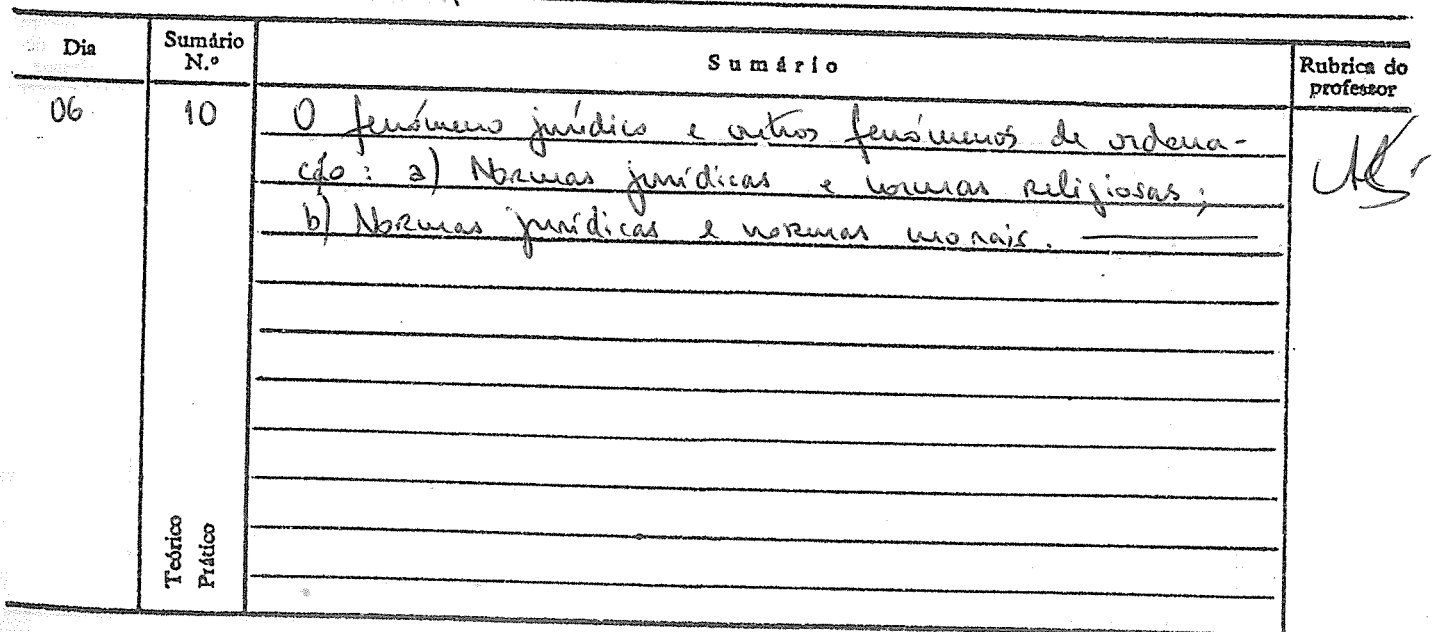 Dia Sumário N.º Sumário Rubrica do professor
06 10 O fenómeno jurídico e outros fenómenos de ordena-
ção: a) Normas jurídicas e normas religiosas;
b) Normas jurídicas e normas morais.
Teórico
Prático